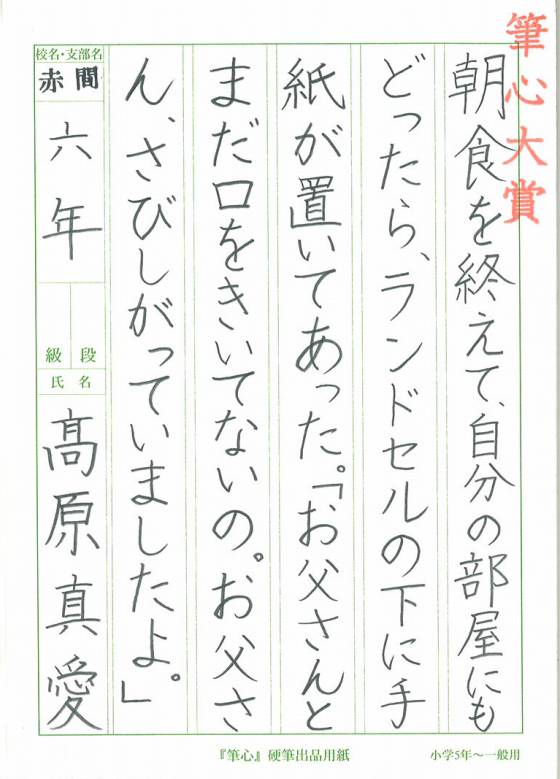 筆心大賞
朝食を終えて、自分の部屋にも
どったら、ランドセルの下に手
紙が置いてあった。「お父さんと
まだ口をきいてないの。お父さ
ん、さびしがっていましたよ。」
校名・支部名
赤間
六年
段
級
氏名
髙原真愛
『筆心』硬筆出品用紙
小学5年〜一般用